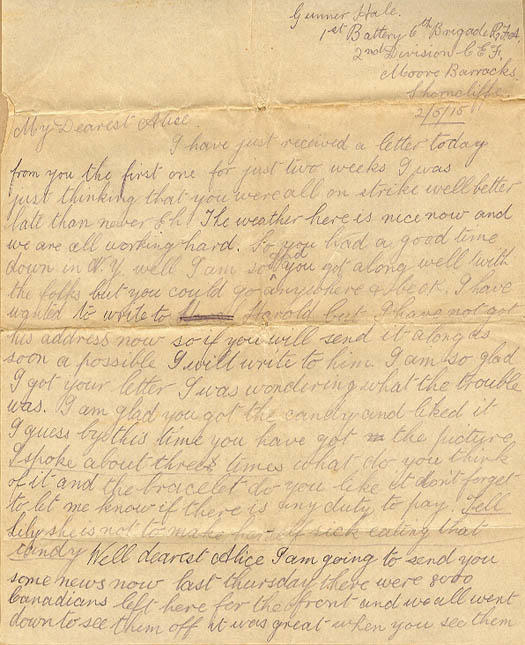 Gunner Hale.
1st Battery 6th Brigade R.F.A.
2nd Division C.E.F.
Moore Barracks
Shorncliffe.
2/5/15
My Dearest Alice.
I have just received a letter today
from you the first one for just two weeks I was
just thinking that you were all on strike well better
late than never Eh! The weather here is nice now and
we are all working hard. So you had a good time
down in N.Y. well I am so glad you got along well with
the folks but you could go anywhere & back. I have
wanted to write to Harold but I have not got
his address now so if you will send it along as
soon a possible I will write to him. I am so glad
I got your letter I was wondering what the trouble
was. I am glad you got the candy and liked it
I guess by this time you have got the picture
I spoke about three times what do you think
of it and the bracelet do you like it don't forget
to let me know if there is any duty to pay. Tell
Lily she is not to make herself sick eating that
candy Well dearest Alice I am going to send you
some news now last thursday there were 8000
Canadians left here for the front and we all went
down to see them off it was great when you see them